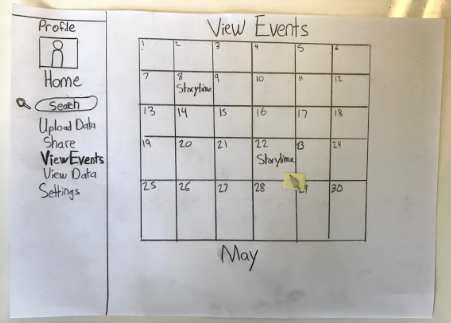 Profile
Home
Search
Upload Data
Share
View Events
View Data
Settings
View Events
1 2 3 4 5 6
7 8 9 10 11 12
Storytime
13 14 15 16 17 18
19 20 21 22 23 24
Storytime
25 26 27 28 29 30
May